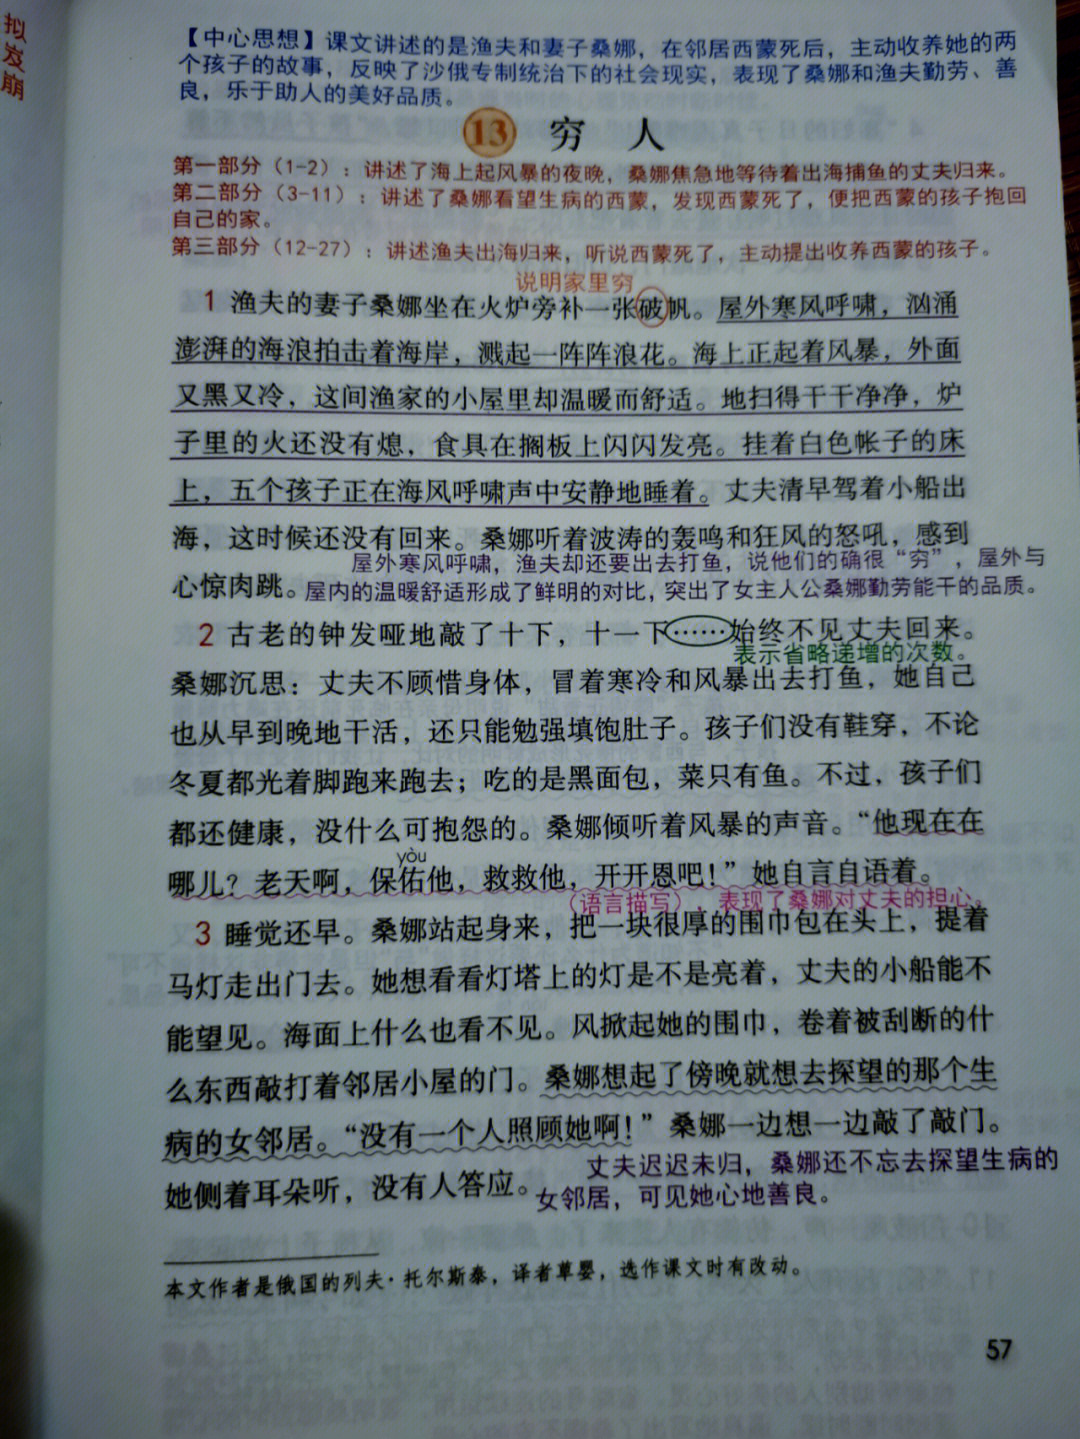 拟
【中心思想】课文讲述的是渔夫和妻子桑娜，在邻居西蒙死后，主动收养她的两
个孩子的故事，反映了沙俄专制统治下的社会现实，表现了桑娜和渔夫勤劳、善
良，乐于助人的美好品质。
崩
13 穷 人
第一部分（1-2）：讲述了海上起风暴的夜晚，桑娜焦急地等待着出海捕鱼的丈夫归来。
第二部分（3-11）：讲述了桑娜看望生病的西蒙，发现西蒙死了，便把西蒙的孩子抱回
自己的家。
第三部分（12-27）：讲述渔夫出海归来，听说西蒙死了，主动提出收养西蒙的孩子。
说明家里穷
1 渔夫的妻子桑娜坐在火炉旁补一张破帆。屋外寒风呼啸，汹涌
澎湃的海浪拍击着海岸，溅起一阵阵浪花。海上正起着风暴，外面
又黑又冷，这间渔家的小屋里却温暖而舒适。地扫得干干净净，炉
子里的火还没有熄，食具在搁板上闪闪发亮。挂着白色帐子的床
上，五个孩子正在海风呼啸声中安静地睡着。丈夫清早驾着小船出
海，这时候还没有回来。桑娜听着波涛的轰鸣和狂风的怒吼，感到
屋外寒风呼啸，渔夫却还要出去打鱼，说他们的确很“穷”，屋外与
心惊肉跳。屋内的温暖舒适形成了鲜明的对比，突出了女主人公桑娜勤劳能干的品质。
2 古老的钟发哑地敲了十下，十一下……始终不见丈夫回来。
表示省略递增的次数。
桑娜沉思：丈夫不顾惜身体，冒着寒冷和风暴出去打鱼，她自己
也从早到晚地干活，还只能勉强填饱肚子。孩子们没有鞋穿，不论
冬夏都光着脚跑来跑去；吃的是黑面包，菜只有鱼。不过，孩子们
都还健康，没什么可抱怨的。桑娜倾听着风暴的声音。“他现在在
yòu
哪儿？老天啊，保佑他，救救他，开开恩吧！”她自言自语着。
（语言描写），表现了桑娜对丈夫的担心。
3 睡觉还早。桑娜站起身来，把一块很厚的围巾包在头上，提着
马灯走出门去。她想看看灯塔上的灯是不是亮着，丈夫的小船能不
能望见。海面上什么也看不见。风掀起她的围巾，卷着被刮断的什
么东西敲打着邻居小屋的门。桑娜想起了傍晚就想去探望的那个生
病的女邻居。“没有一个人照顾她啊！”桑娜一边想一边敲了敲门。
她侧着耳朵听，没有人答应。
丈夫迟迟未归，桑娜还不忘去探望生病的
女邻居，可见她心地善良。
本文作者是俄国的列夫·托尔斯泰，译者草婴，选作课文时有改动。
57